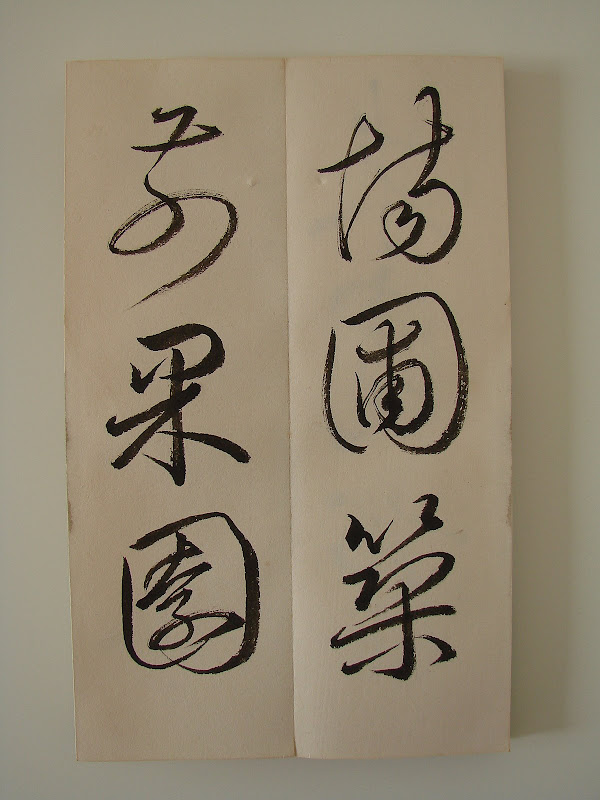 場圃築
前果園